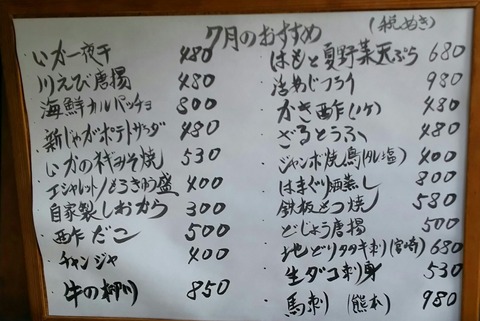 7月のおすすめ
(税ぬき)
いか一夜干 480
川えび唐揚 480
海鮮カルパッチョ 800
新じゃがポテトサラダ 480
いかのネギみそ焼 530
エシャレット/もろきゅう盛 400
自家製しおから 300
酢だこ 500
チャンジャ 400
牛の柳川 850
はもと夏野菜天ぷら 680
活あじフライ 980
かき酢(1ケ) 480
ざるとうふ 480
ジャンボ焼鳥(タレ塩) 400
はまぐり酒蒸し 800
鉄板もつ焼 580
どじょう唐揚 500
地どりタタキ刺(宮崎) 680
生ダコ刺身 530
馬刺 (熊本) 980